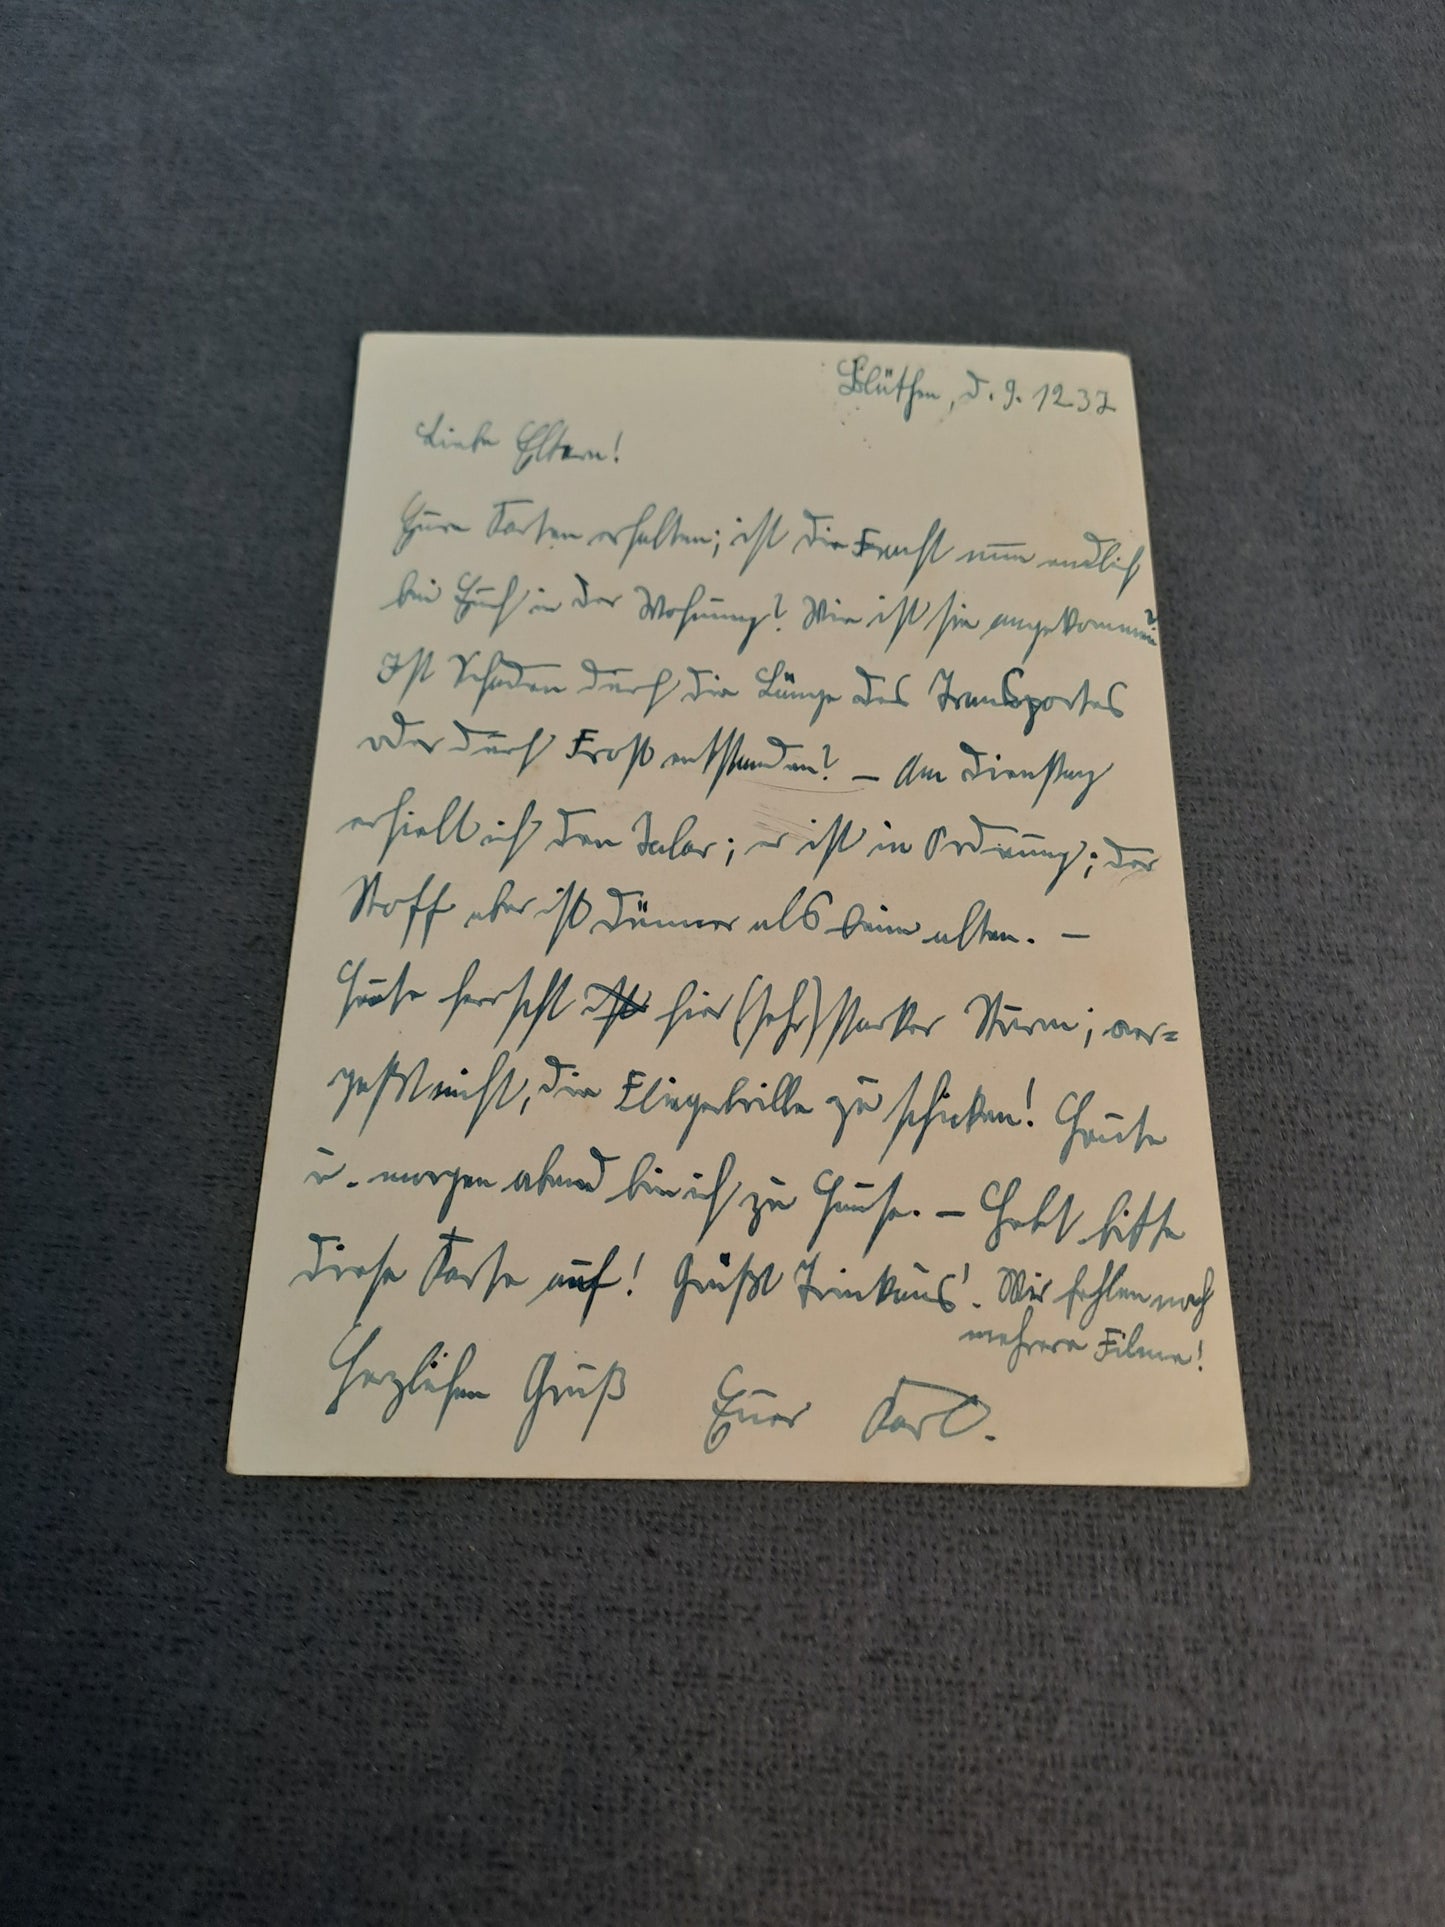 Blüthen, d. 9. 12 37
Liebe Eltern!
Eure Karten erhalten; ist die Fracht nun endlich
bei Euch in der Wohnung? Wie ist sie angekommen?
Ist Schaden durch die Länge des Transportes
oder durch Frost entstanden? – Am Dienstag
erhielt ich den Talar; er ist in Ordnung; der
Stoff aber ist dünner als beim alten. –
Heute herrscht ist hier (sehr) starker Sturm; ver=
geßt nicht, die Fliegerbrille zu schicken! Heute
u. morgen abend bin ich zu Hause. – Hebt bitte
diese Karte auf! Grüßt Trinkaus'. Mir fehlen noch
mehrere Filme!
Herzlichen Gruß Euer Karl.